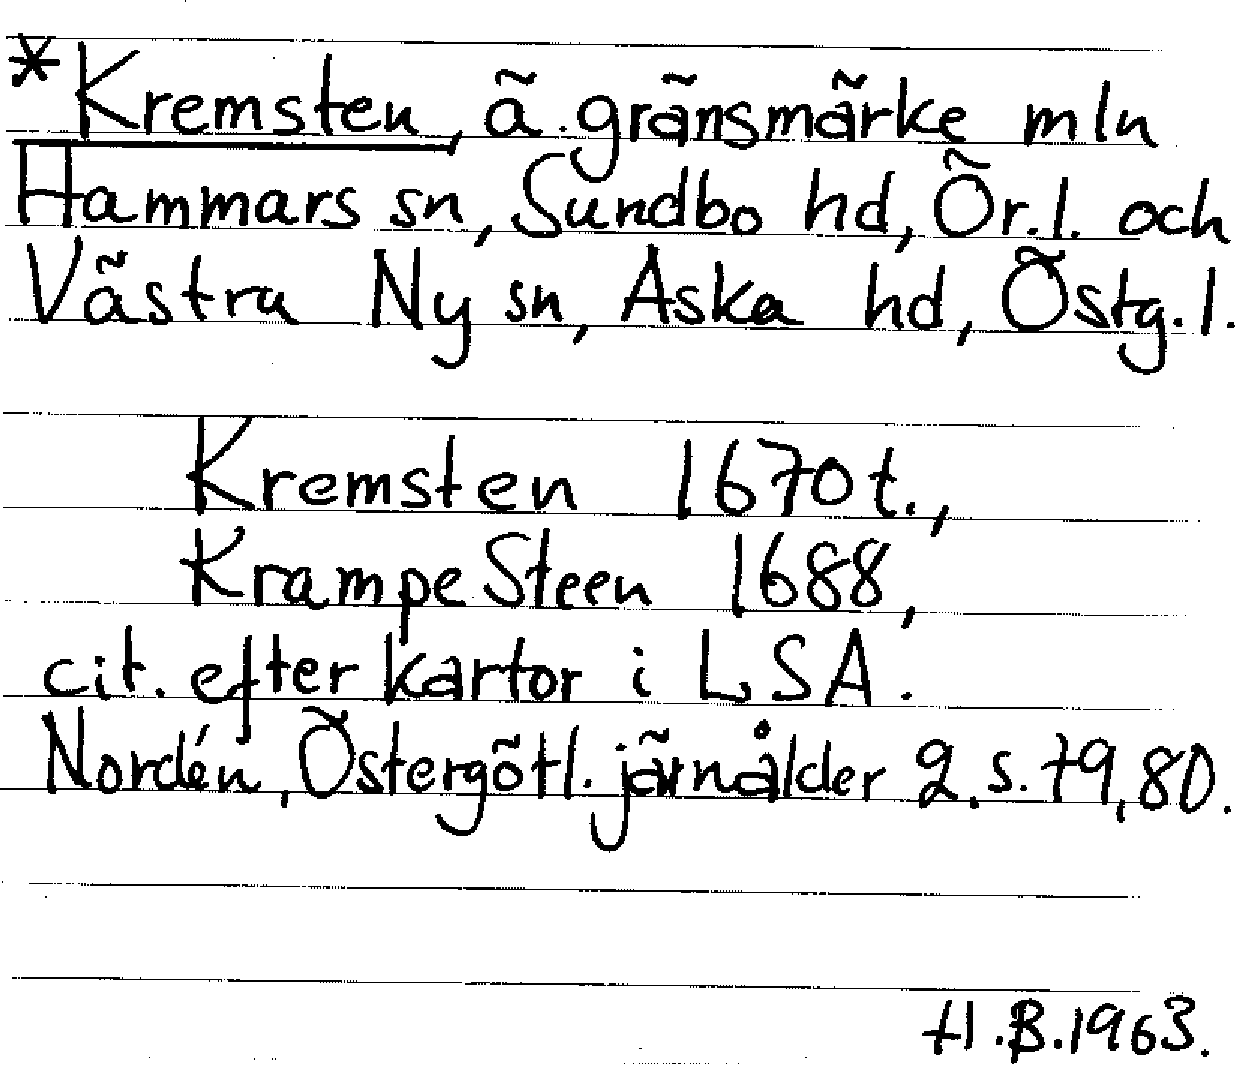 *Kremsten, ä. gränsmärke mln
Hammars sn, Sundbo hd, Ör.l. och
Västra Ny sn, Aska hd, Östg.l.
Kremsten 1670t.,
KrampeSteen 1688,
cit. efter kartor i LSA.
Nordén, Östergötl. järnålder 2, s. 79, 80.
H.B. 1963.